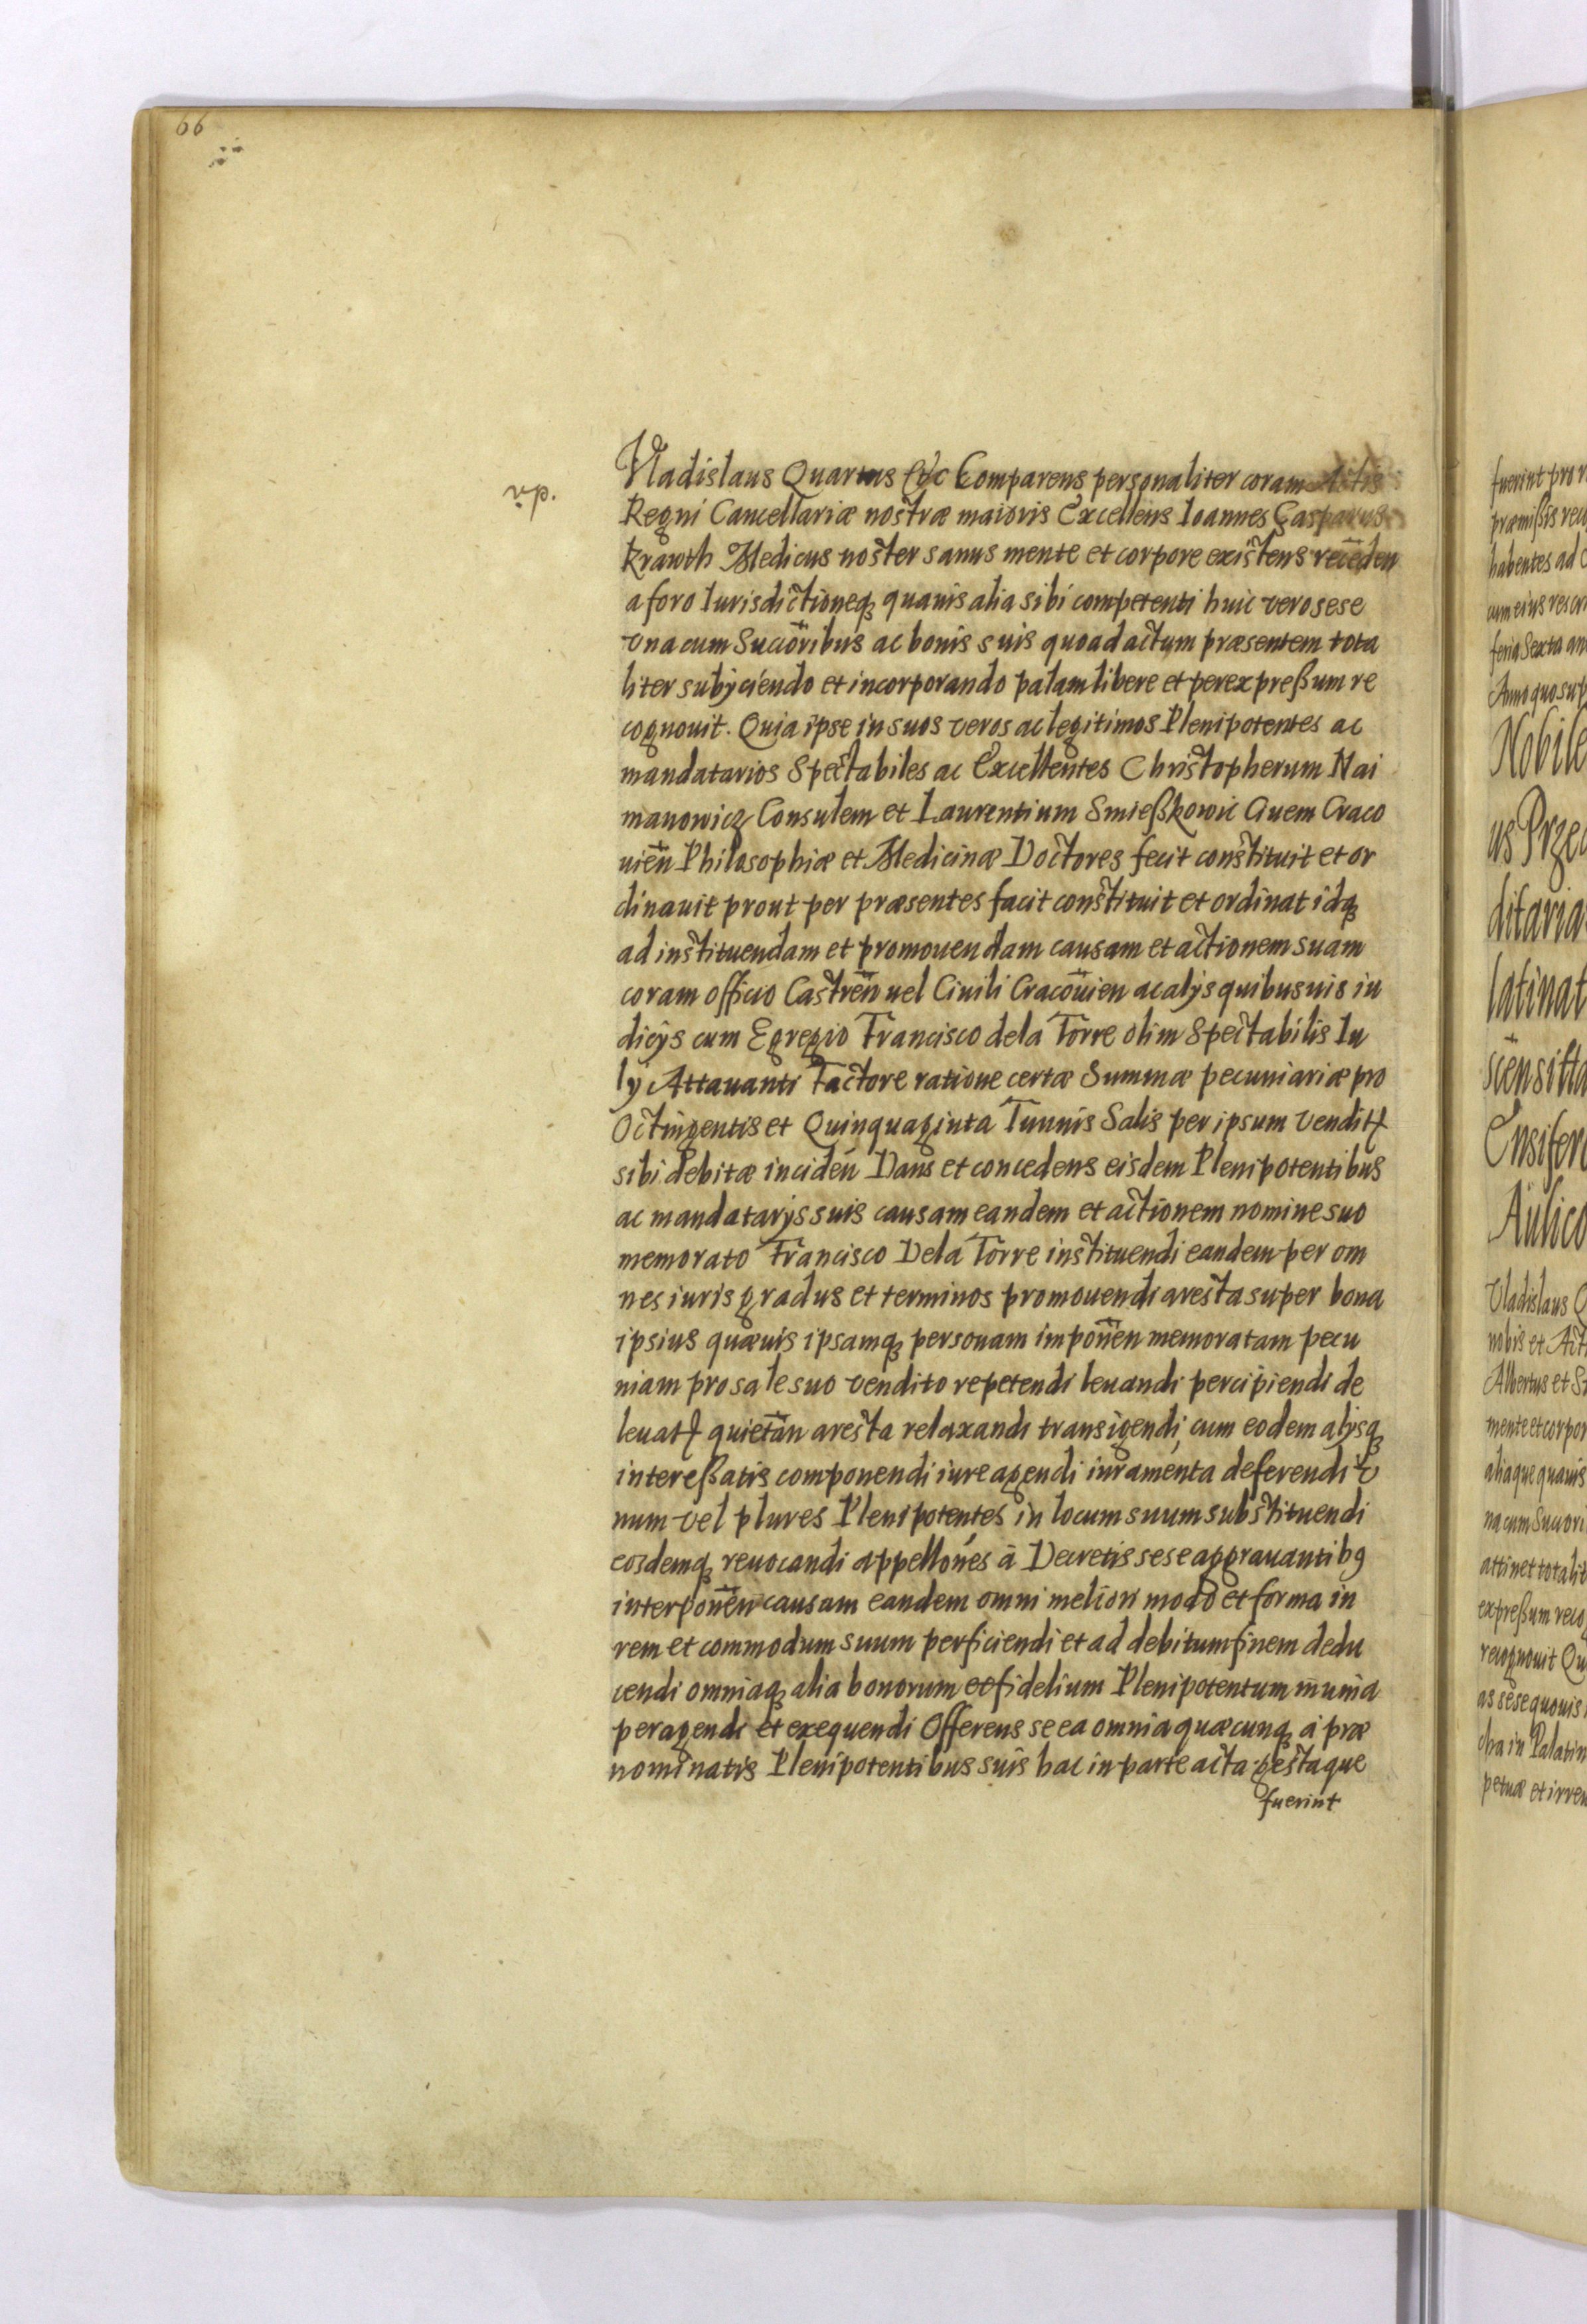 66
Vladislaus Quartus &c Comparens personaliter coram Actis
Regni Cancellariæ nostræ maioris Excellens Ioannes Gasparus
Krawth Medicus noster sanus mente et corpore existens receden
a foro Iurisdictioneq quauis alia sibi competenti huic vero sese
vna cum Succoribus ac bonis suis quoad actum præsentem tota
liter subijciendo et incorporando palam libere et per expreßum re
cognouit. Quia ipse in suos veros ac legitimos Plenipotentes ac
mandatarios Spectabiles ac Excellentes Christopherum Nai
manowicz Consulem et Laurentium Smießkowic Ciuem Craco
uien Philosophiæ et Medicinæ Doctores fecit constituit et or
dinauit prout per præsentes facit constituit et ordinat idq
ad instituendam et promouendam causam et actionem suam
coram officio Castren uel Ciuili Cracouien ac alijs quibusuis iu
dicijs cum Egregio Francisco dela Torre olim Spectabilis Iu
lij Attauanti Factore ratione certæ Summæ pecuniariæ pro
Octingentis et Quinquaginta Tunnis Salis per ipsum vendit
sibi debitæ inciden Dans et concedens eisdem Plenipotentibus
ac mandatarijs suis causam eandem et actionem nomine suo
memorato Francisco Dela Torre instituendi eandem per om
nes iuris gradus et terminos promouendi aresta super bona
ipsius quæuis ipsamq personam imponen memoratam pecu
niam pro sale suo vendito repetendi leuandi percipiendi de
leuat quietan aresta relaxandi transigendi, cum eodem alijsq
intereßatis componendi iure agendi iuramenta deferendi v
num vel plures Plenipotentes in locum suum substituendi
eosdemq reuocandi appellones à Decretis sese aggrauantibq
interponen causam eandem omni meliori modo et forma in
rem et commodum suum perficiendi et ad debitum finem dedu
cendi omniaq alia bonorum et fidelium Plenipotentum munia
peragendi et exequendi Offerens se ea omnia quæcunq à præ
nominatis Plenipotentibus suis hac in parte acta gestaque
fuerint
fuerint pro r
præmißis
habentes ad
cum eius
feria Sexta an
Anno quo sup
Nobile
us Prze
ditaria
latinat
Ensifer
Aulico
Vladislaus Q
nobis et Act
Albertus et St
mente et corpor
aliaque quauis
na cum Succori
attinet totalit
expreßum reco
recognouit Qu
as sese quouis
cha in Palatin
petuæ et irreu